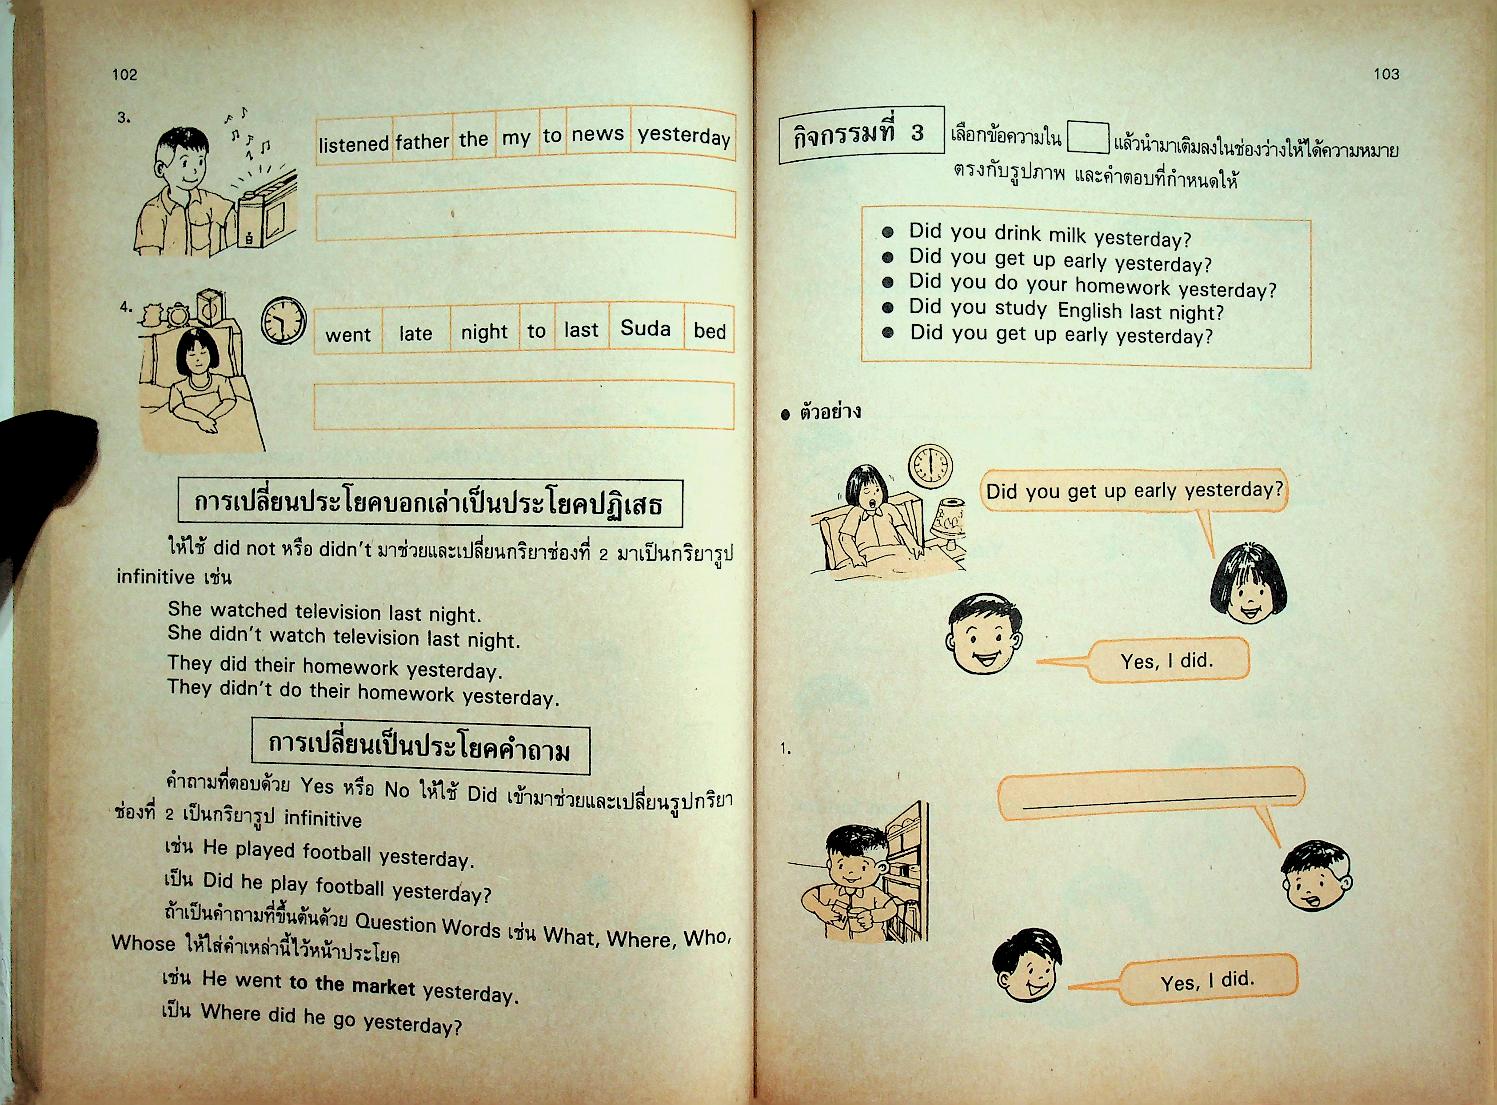 102
3.
listened father the my to news yesterday
4.
went late night to last Suda bed
การเปลี่ยนประโยคบอกเล่าเป็นประโยคปฏิเสธ
ให้ใช้ did not หรือ didn't มาช่วยและเปลี่ยนกริยาช่องที่ 2 มาเป็นกริยารูป
infinitive เช่น
She watched television last night.
She didn't watch television last night.
They did their homework yesterday.
They didn't do their homework yesterday.
การเปลี่ยนเป็นประโยคคำถาม
คำถามที่ตอบด้วย Yes หรือ No ให้ใช้ Did เข้ามาช่วยและเปลี่ยนรูปกริยา
ช่องที่ 2 เป็นกริยารูป infinitive
เช่น He played football yesterday.
เป็น Did he play football yesterday?
ถ้าเป็นคำถามที่ขึ้นต้นด้วย Question Words เช่น What, Where, Who,
Whose ให้ใส่คำเหล่านี้ไว้หน้าประโยค
เช่น He went to the market yesterday.
เป็น Where did he go yesterday?
103
กิจกรรมที่ 3 เลือกข้อความใน แล้วนำมาเติมลงในช่องว่างให้ได้ความหมาย
ตรงกับรูปภาพ และคำตอบที่กำหนดให้
● Did you drink milk yesterday?
● Did you get up early yesterday?
● Did you do your homework yesterday?
● Did you study English last night?
● Did you get up early yesterday?
● ตัวอย่าง
Did you get up early yesterday?
Yes, I did.
1.
Yes, I did.